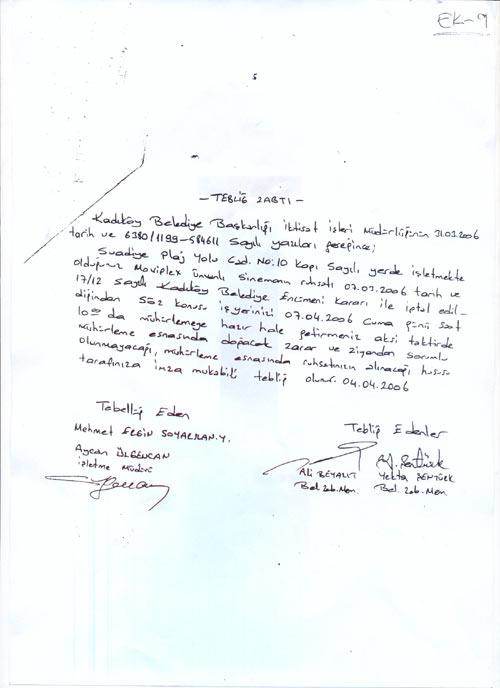 EK-9
- TEBLİĞ ZABTI -
Kadıköy Belediye Başkanlığı İktisat işleri Müdürlüğünün 31.03.2006
tarih ve 6380/1199-584611 Sayılı yazıları gereğince;
Suadiye Plaj Yolu Cad. No:10 Kapı Sayılı yerde işletmekte
olduğunuz Moviplex ünvanlı Sinemanın ruhsatı 07.03.2006 tarih ve
17/12 Sayılı Kadıköy Belediye Encümeni kararı ile iptal edil-
diğinden Söz konusu işyerinizi 07.04.2006 Cuma günü saat
10 00 da mühürlemeye hazır hale getirmeniz aksi taktirde
mühürleme esnasında doğacak zarar ve ziyandan sorumlu
olunmayacağı, mühürleme esnasında ruhsatınızın alınacağı hususu
tarafınıza imza mukabili tebliğ olunur. 04.04.2006
Tebellüğ Eden
Mehmet ERGİN
Aycan ÜLGENCAN
işletme Müdürü
Tebliğ Edenler
Ali BEYAZIT
Bel. Zab. Mem.
Yekta ŞENTÜRK
Bel. Zab. Mem.